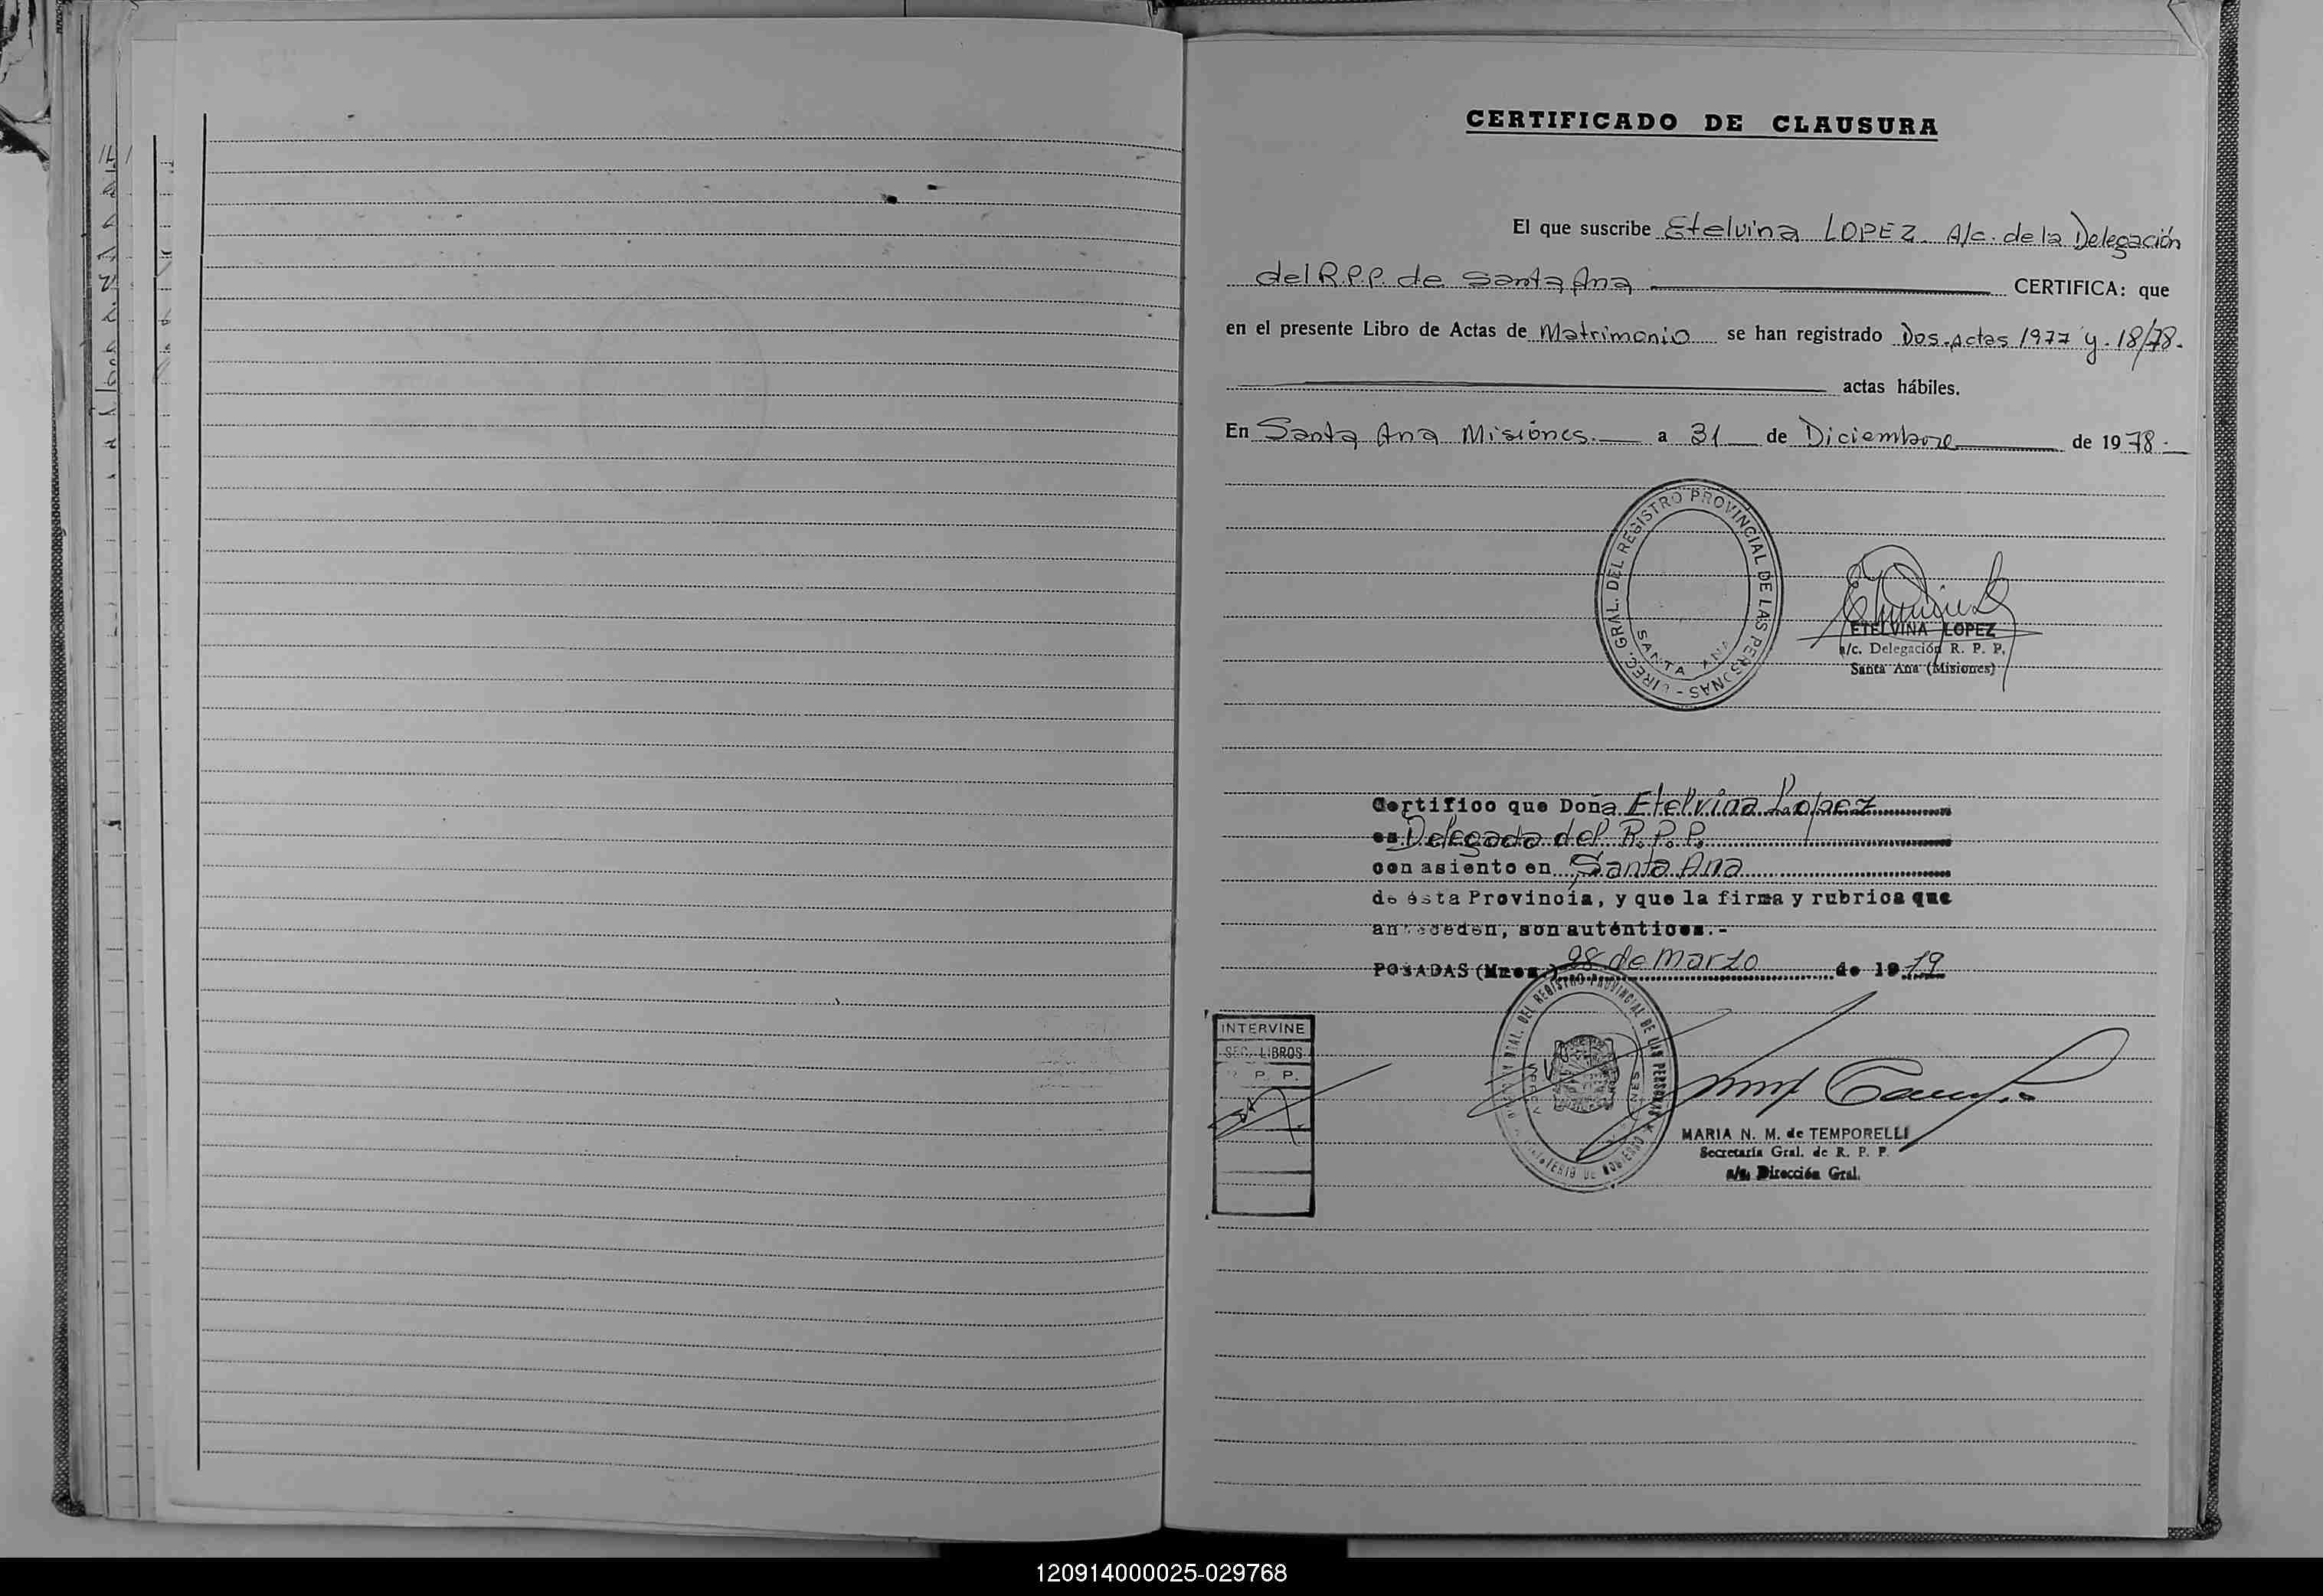 CERTIFICADO DE CLAUSURA
El que suscribe Etelvina LOPEZ. A/c. de la Delegación
del R.P.P. de Santa Ana CERTIFICA: que
en el presente Libro de Actas de Matrimonio se han registrado Dos Actas 1977 y. 18/78.
actas hábiles.
En Santa Ana Misiones. a 31 de Diciembre de 1978.
DIREC. GRAL. DEL REGISTRO PROVINCIAL DE LAS PERSONAS -
SANTA ANA
ETELVINA LOPEZ
a/c. Delegación R. P. P.
Santa Ana (Misiones)
Certifico que Doña Etelvina Lopez
es Delegada del R.P.P.
con asiento en Santa Ana
de ésta Provincia, y que la firma y rubrica que
anteceden, son auténticas.-
POSADAS (Mnes.) 08 de Marzo de 1979
INTERVINE
SEC. LIBROS
R. P. P.
GRAL. DEL REGISTRO PROVINCIAL DE LAS PERSONAS
MINISTERIO DE GOBIERNO
MARIA N. M. de TEMPORELLI
Secretaría Gral. de R. P. P.
a/c. Dirección Gral.
120914000025-029768